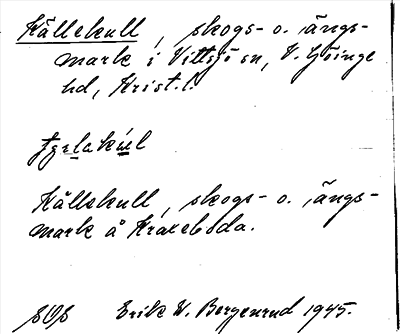 Källekull, skogs- o. ängs-
mark i Vittsjö sn, V. Göinge
hd, Krist. l.
Källekull, skogs- o. ängs-
mark å Kraxeboda.
SOS Erik W. Bergenrud 1945.